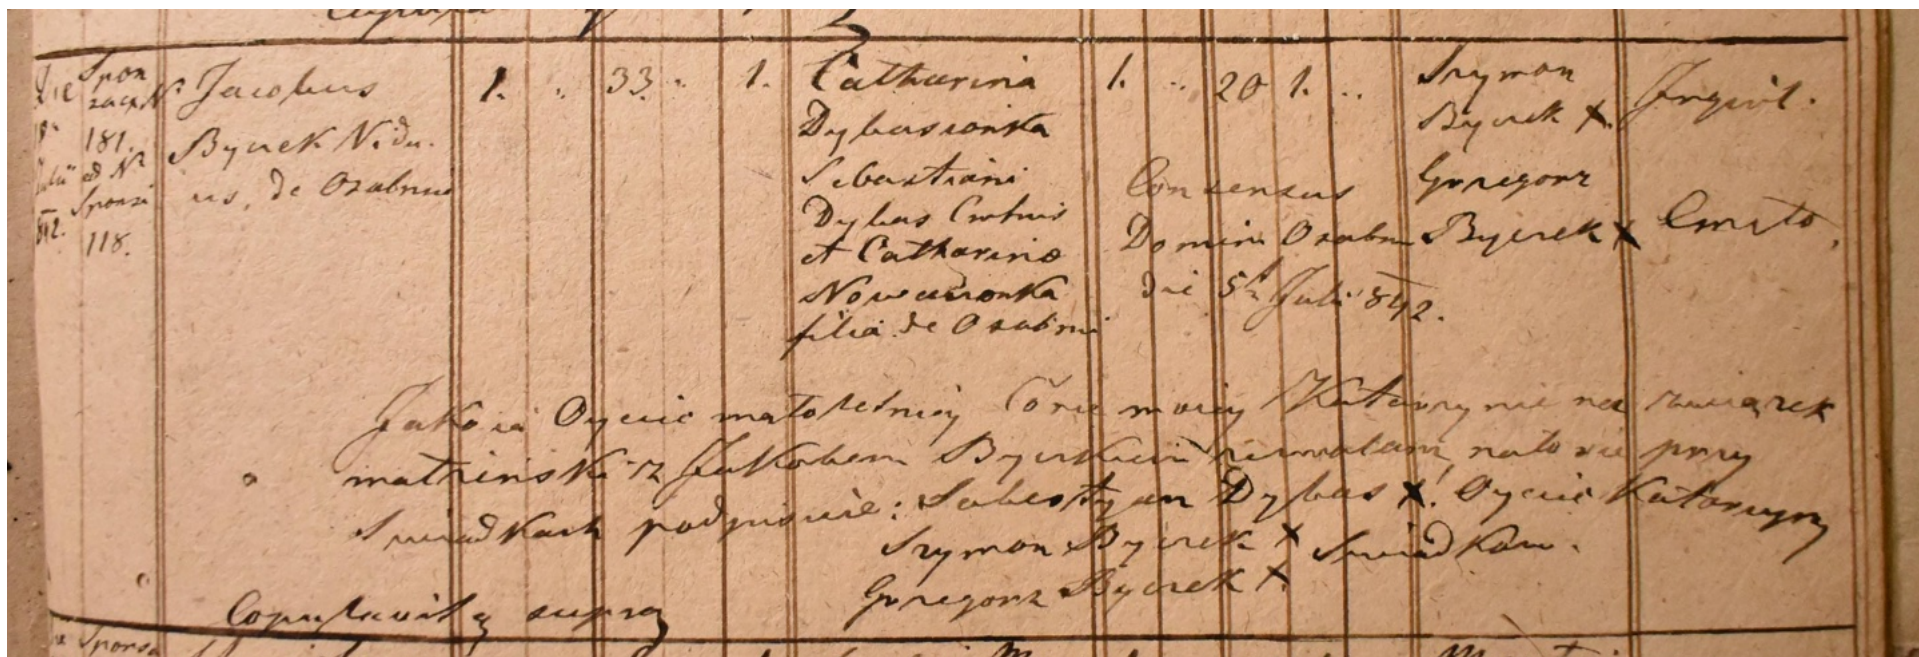 Die
18
Julii
842.
Spon
sae, Nr
181.
ad Nr
Sponsi
118.
Jacobus
Bycrek Vidu.
us, de Osabnic
1. 33. 1.
Catharina
Dybasionka
Sebastiani
Dybas Cmtonis
et Catharina
Nowacionka
filia de Osabnic
1. 20 1.
Consensus
Domini Osabni
die 5ta Julii 842.
Szymon
Bycrek X.
Grzegorz
Bycrek X
Inquil.
Cmeto,
Jako ia Oyciec małoletniey Córce moiey Katarzynie na związek
małżeński z Jakobem Byrkiem zezwalam na to się przy
Swiadkach podpisuie: Sebestyan Dybas X! Oyciec Katarzyny
Szymon Bycrek X Swiadkow.
Grzegorz Bycrek X.
Copulavit q supra
Sponsa